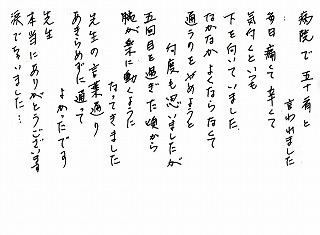 病院で五十肩と
言われました
毎日痛くて辛くて
気付くといつも
下を向いていました。
なかなかよくならなくて
通うのをやめようと
何度も思いましたが
五回目を過ぎた頃から
腕が楽に動くように
なってきました
先生の言葉通り
あきらめずに通って
よかったです
先生
本当にありがとうございます
涙でちゃいました…